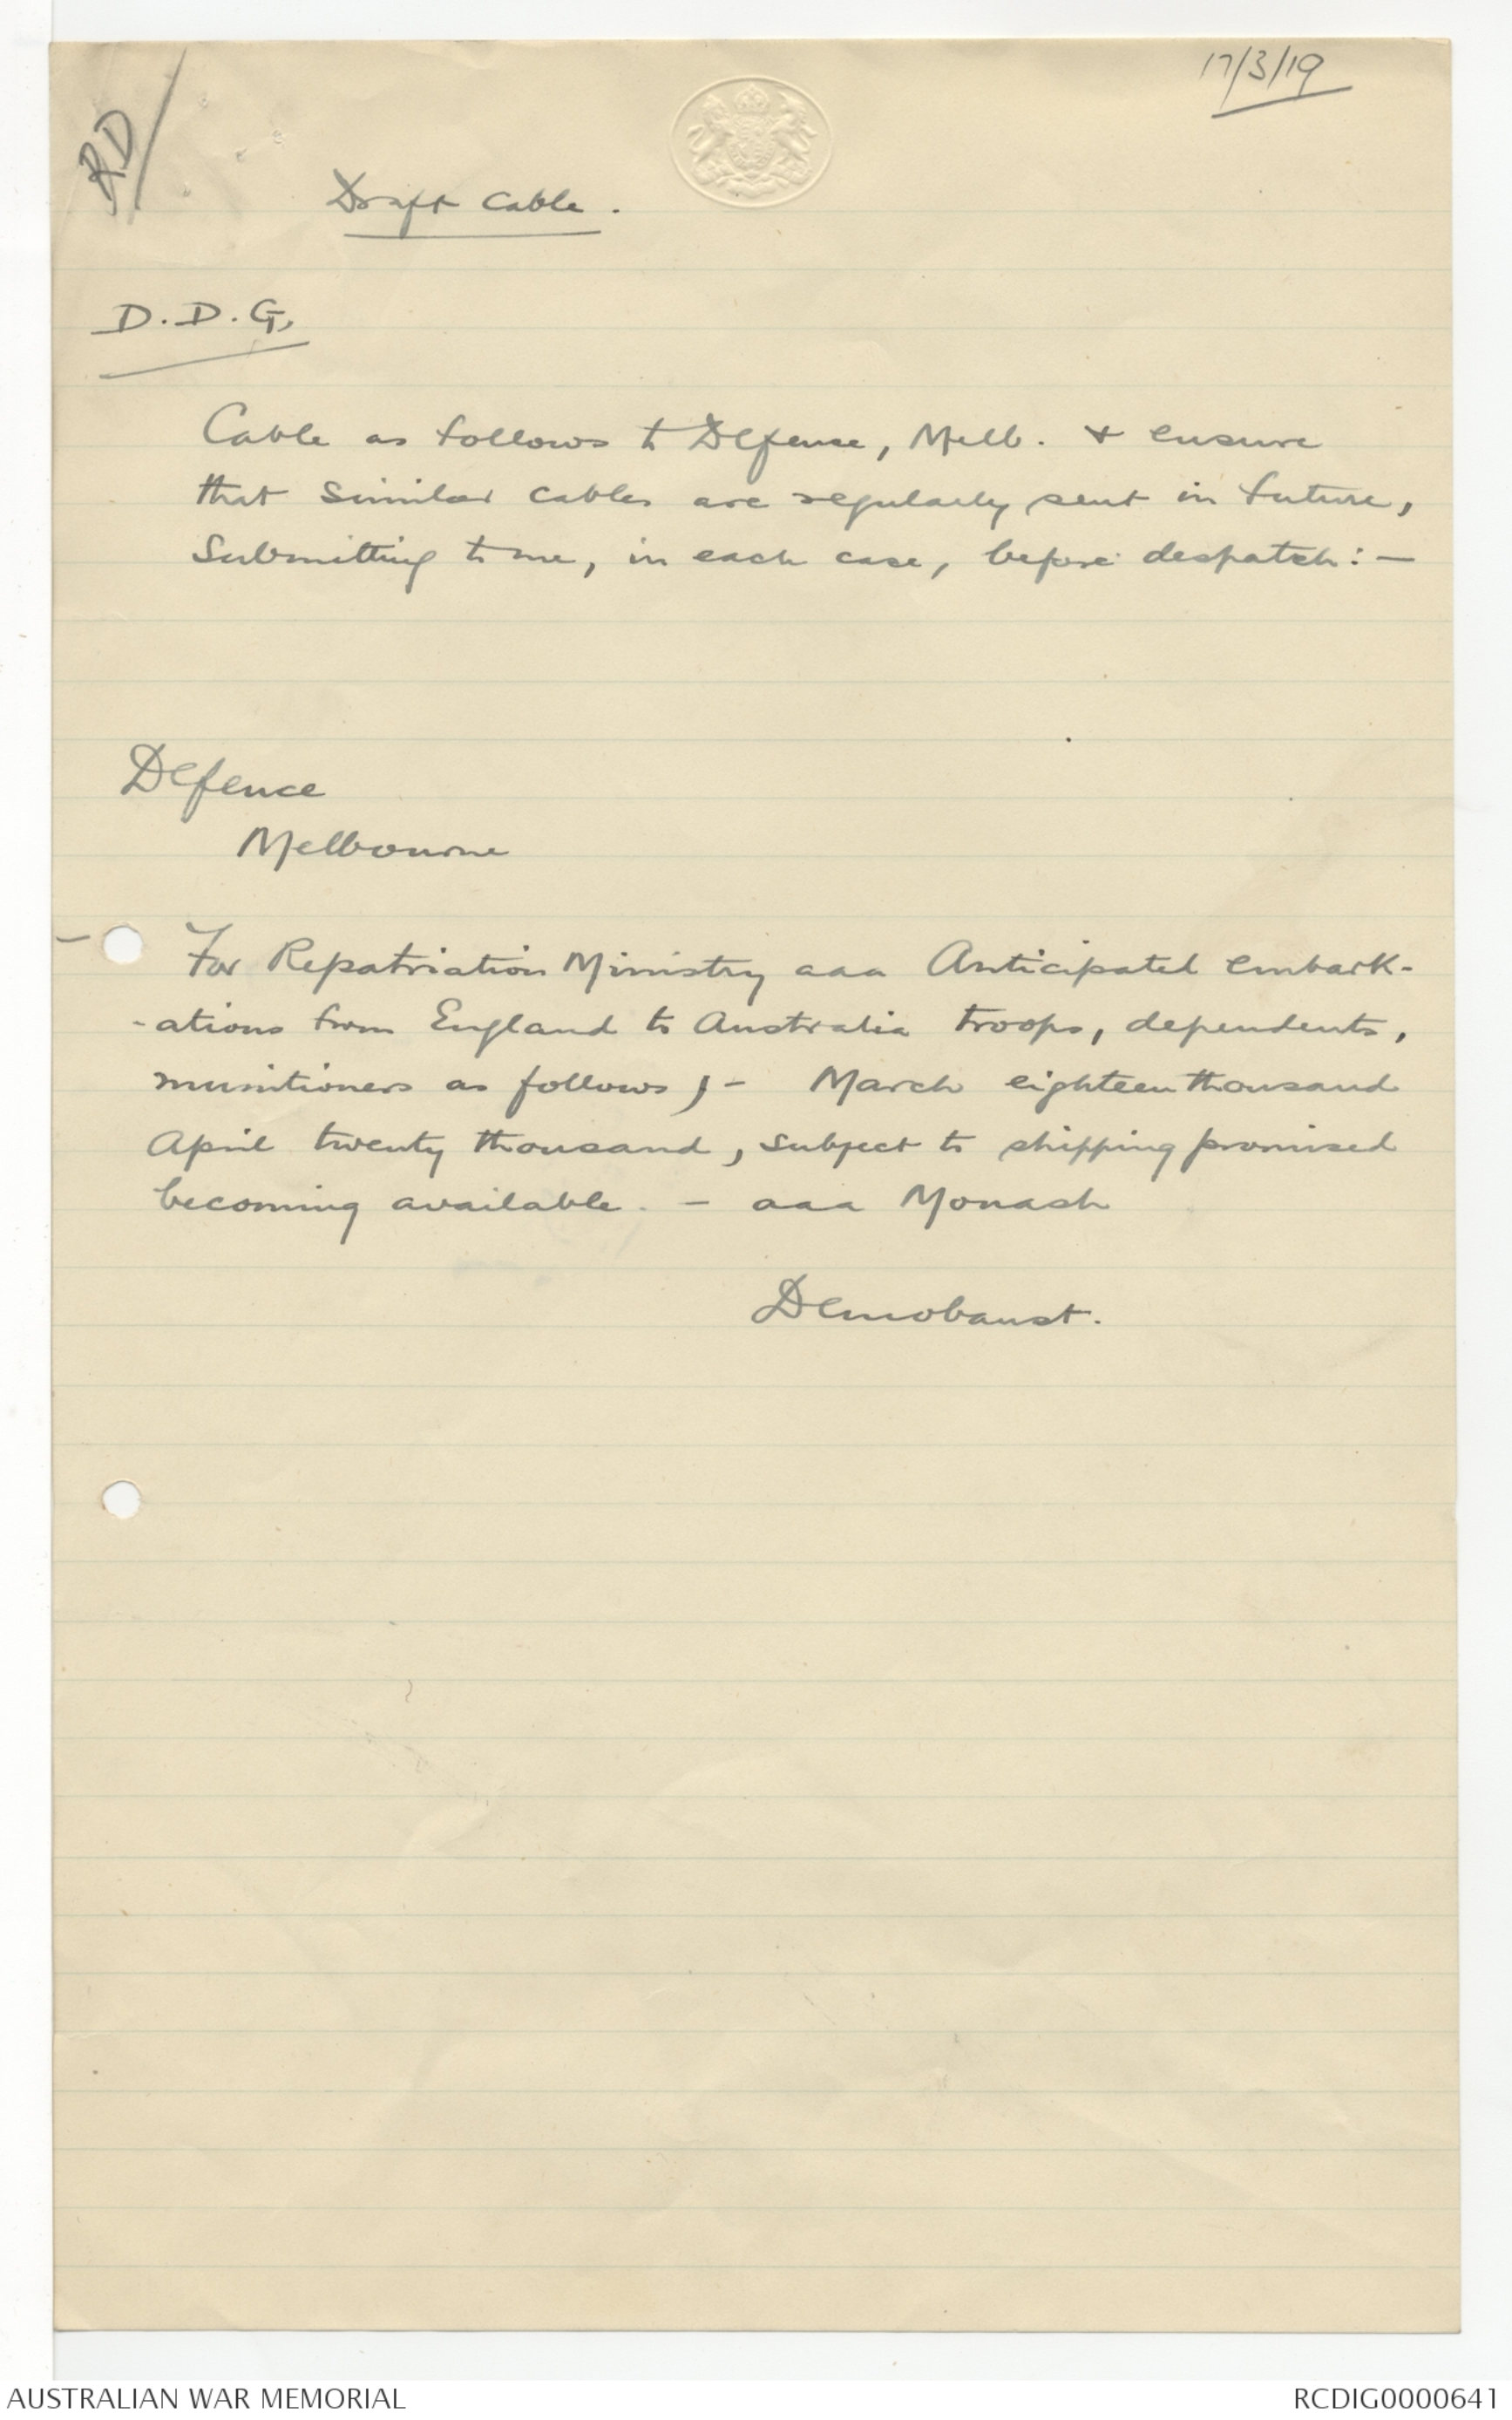 17/3/19
RD
Draft Cable.
D.D.G.
Cable as follows to Defense, Melb. & ensure
that similar cables are regularly sent in future,
submitting to me, in each case, before despatch:—
Defence
Melbourne
For Repatriation Ministry aaa Anticipated embark-
-ations from England to Australia troops, dependents,
munitioners as follows;- March eighteen thousand
April twenty thousand, subject to shipping promised
becoming available. — aaa Monash
Demobaust.
AUSTRALIAN WAR MEMORIAL
RCDIG0000641